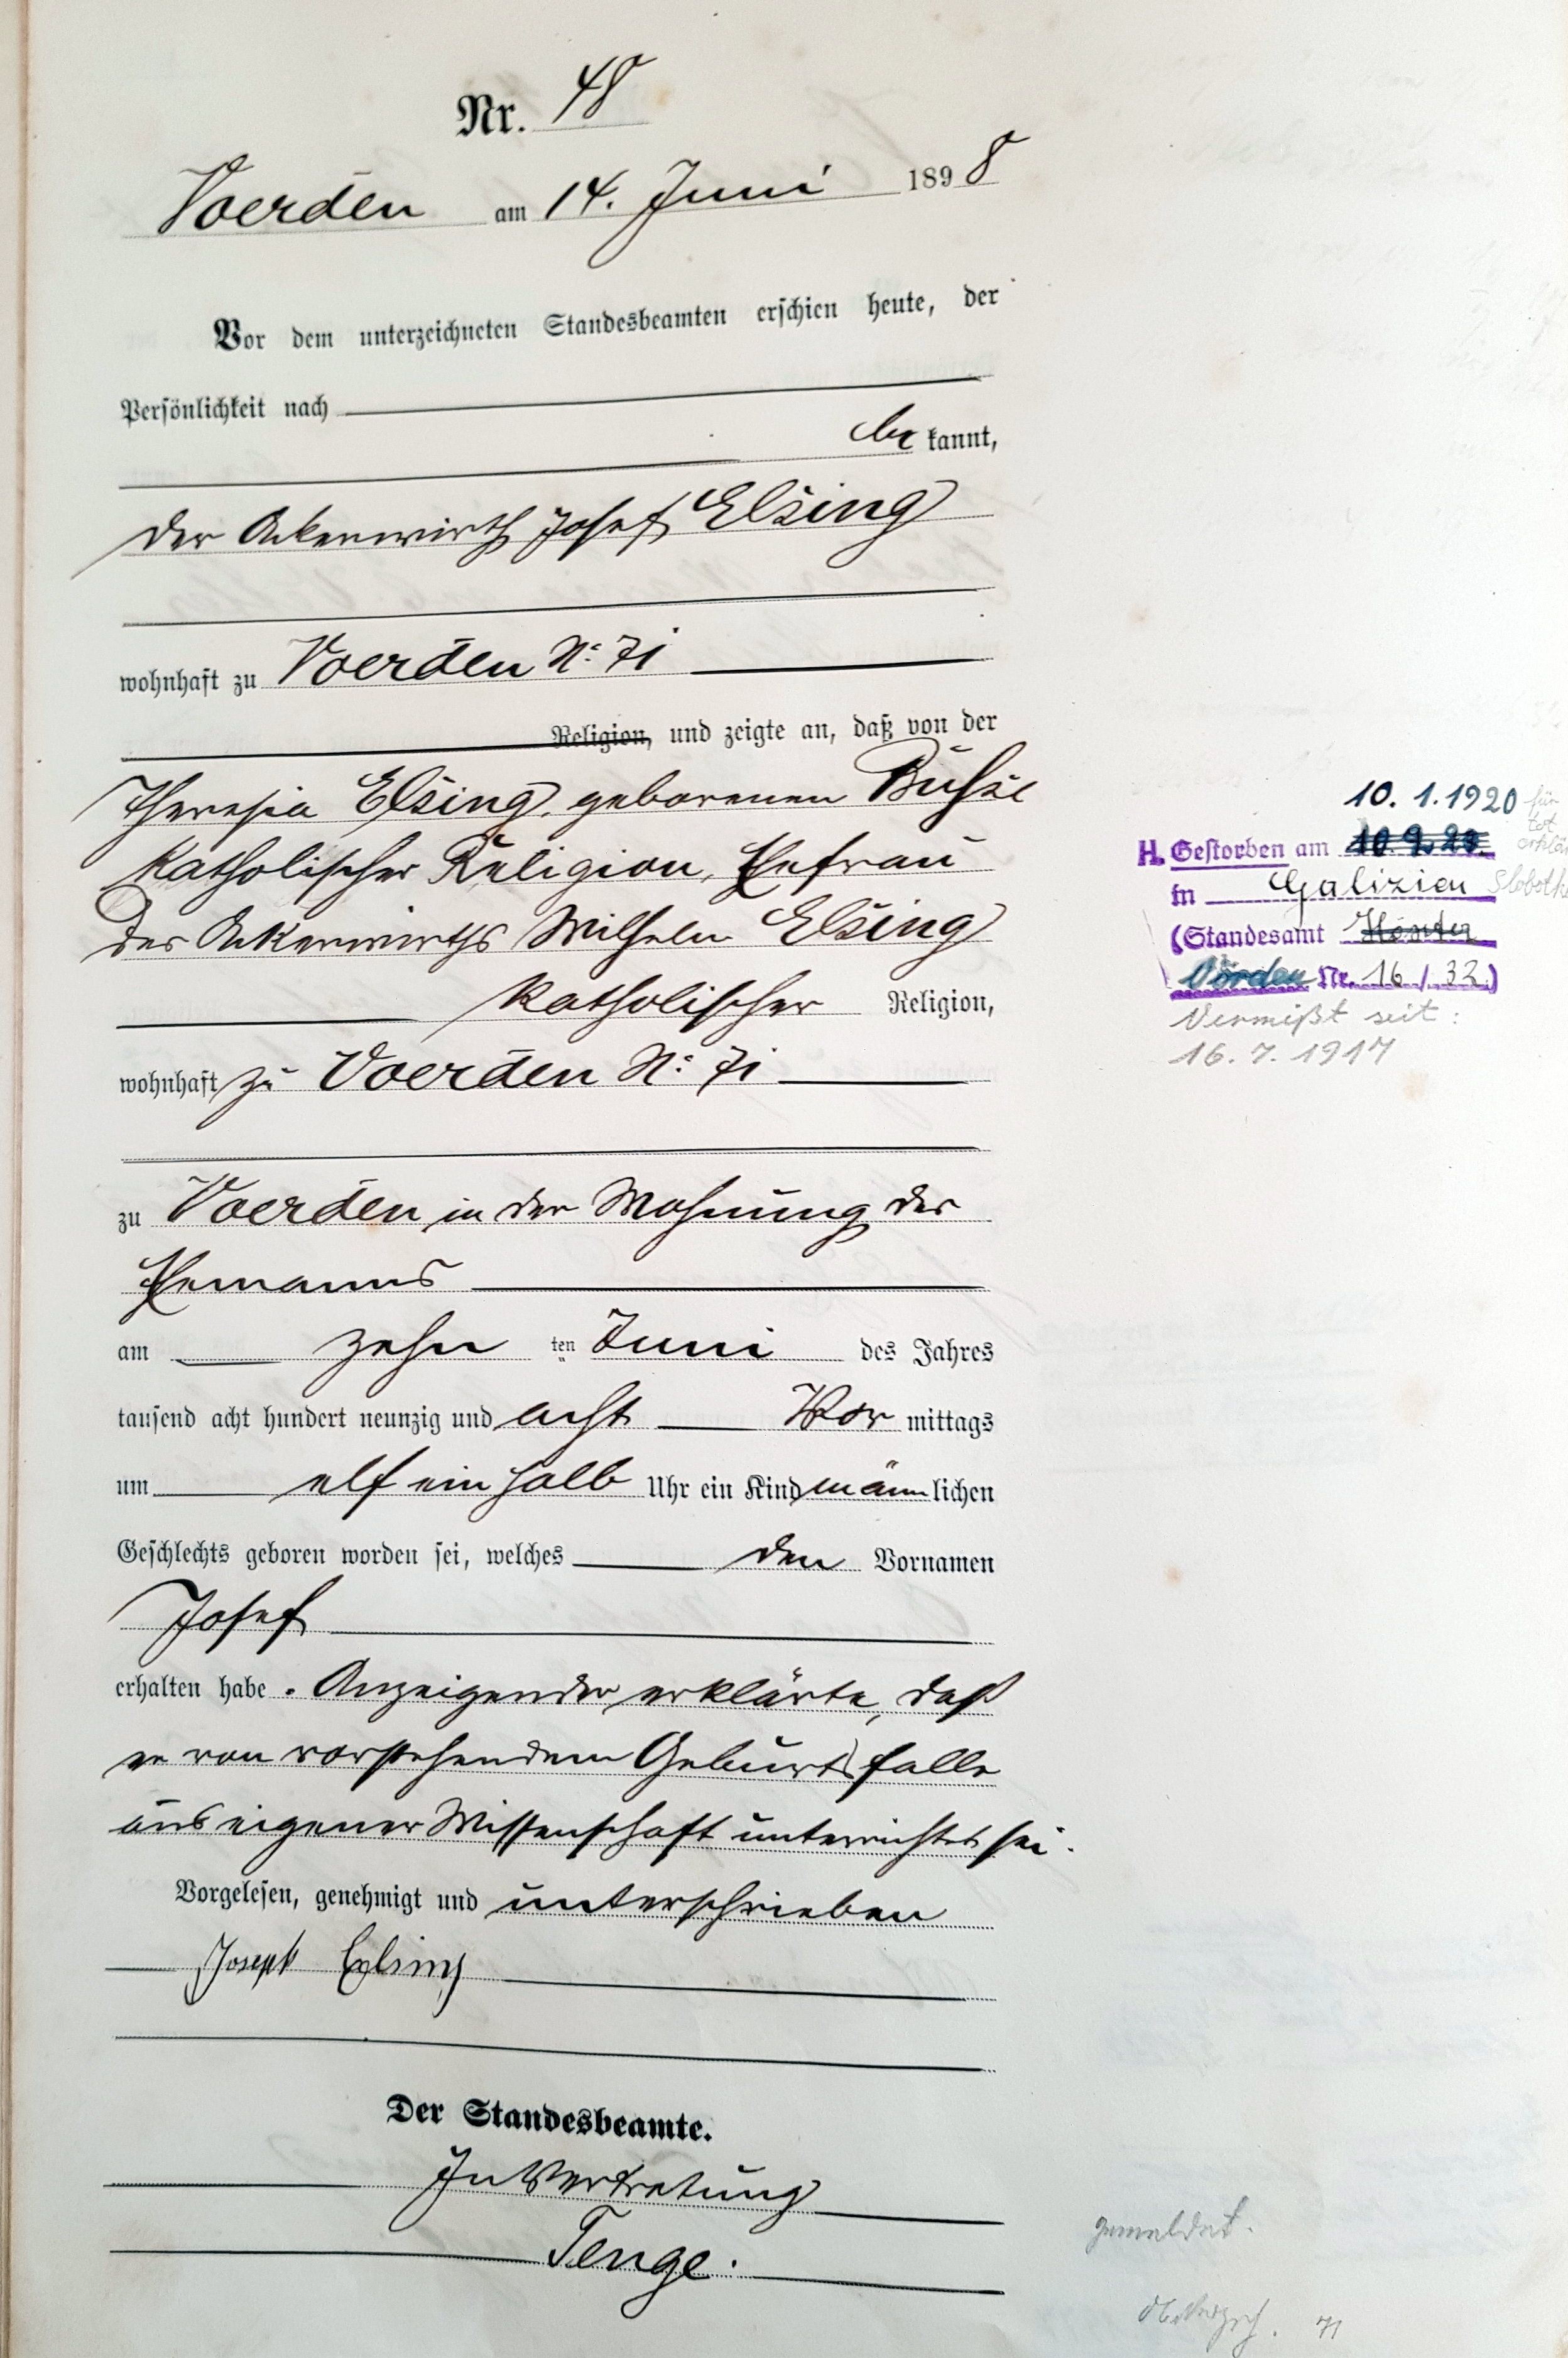 Nr. 48
Voerden am 14. Juni 1898
Vor dem unterzeichneten Standesbeamten erschien heute, der
Persönlichkeit nach
be kannt,
der Ackerwirth Josef Elsing
wohnhaft zu Voerden No 71
Religion, und zeigte an, daß von der
Theresia Elsing, geborenen Buhse
katholischer Religion, Ehefrau
des Ackerwirths Wilhelm Elsing
katholischer Religion,
wohnhaft zu Voerden No 71
zu Voerden in der Wohnung des
Ehemanns
am zehn ten Juni des Jahres
tausend acht hundert neunzig und acht Vor mittags
um elf ein halb Uhr ein Kind männlichen
Geschlechts geboren worden sei, welches den Vornamen
Josef
erhalten habe. Anzeigender erklärte, daß
er von vorstehendem Geburtsfalle
aus eigener Wissenschaft unterrichtet sei.
Vorgelesen, genehmigt und unterschrieben
Joseph Elsing
Der Standesbeamte.
In Vertretung
Tenge.
10. 1. 1920 für tot
H. Gestorben am 10. 9. 20.
in Galizien
(Standesamt Höxter
Vörden Nr. 16 / 32.)
Vermißt seit:
16. 7. 1917
gemeldet.
71